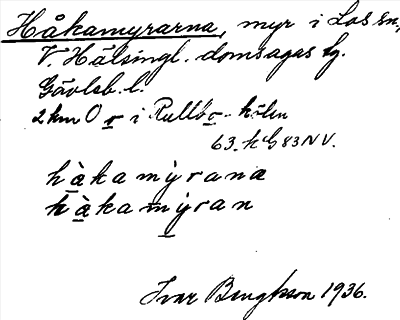 Håkamyrarna, myr i Los sn,
V. Hälsingl. domsagas tg.
Gävleb. l.
2 km O i Rullbo-
63. 83 NV.
hàkamỳrana
hàkamỳran
Ivar Bengtsson 1936.